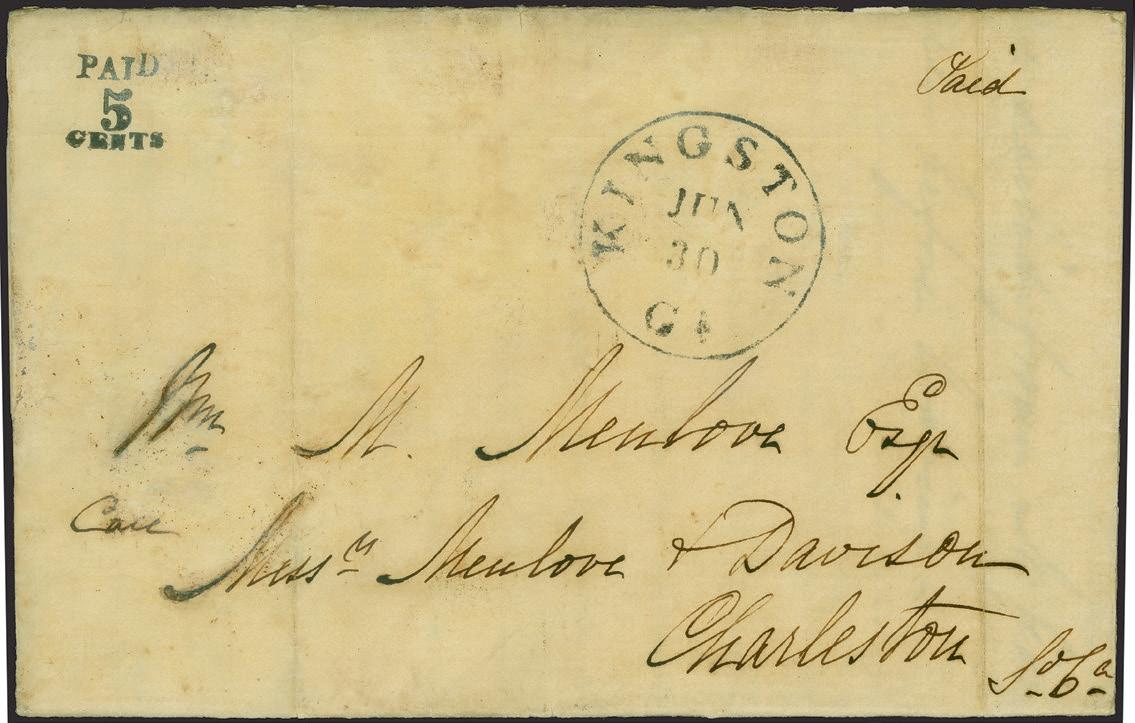 PAID
5
CENTS
Paid
KINGSTON
JUN
30
GA
Wm M. Menlove Esqr
Care
Messrs Menlove & Davison
Charleston
So Ca